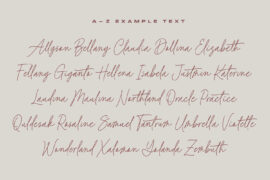 A-Z EXAMPLE TEXT
Allyson Bellany Claudia Dollina Elizabeth
Fellany Giganto Hellena Isabela Justmin Katerine
Laudina Maulina Northland Oracle Practice
Quldesak Rosaline Samuel Tantrum Umbrella Violette
Wonderland Xalaman Yolanda Zembuth